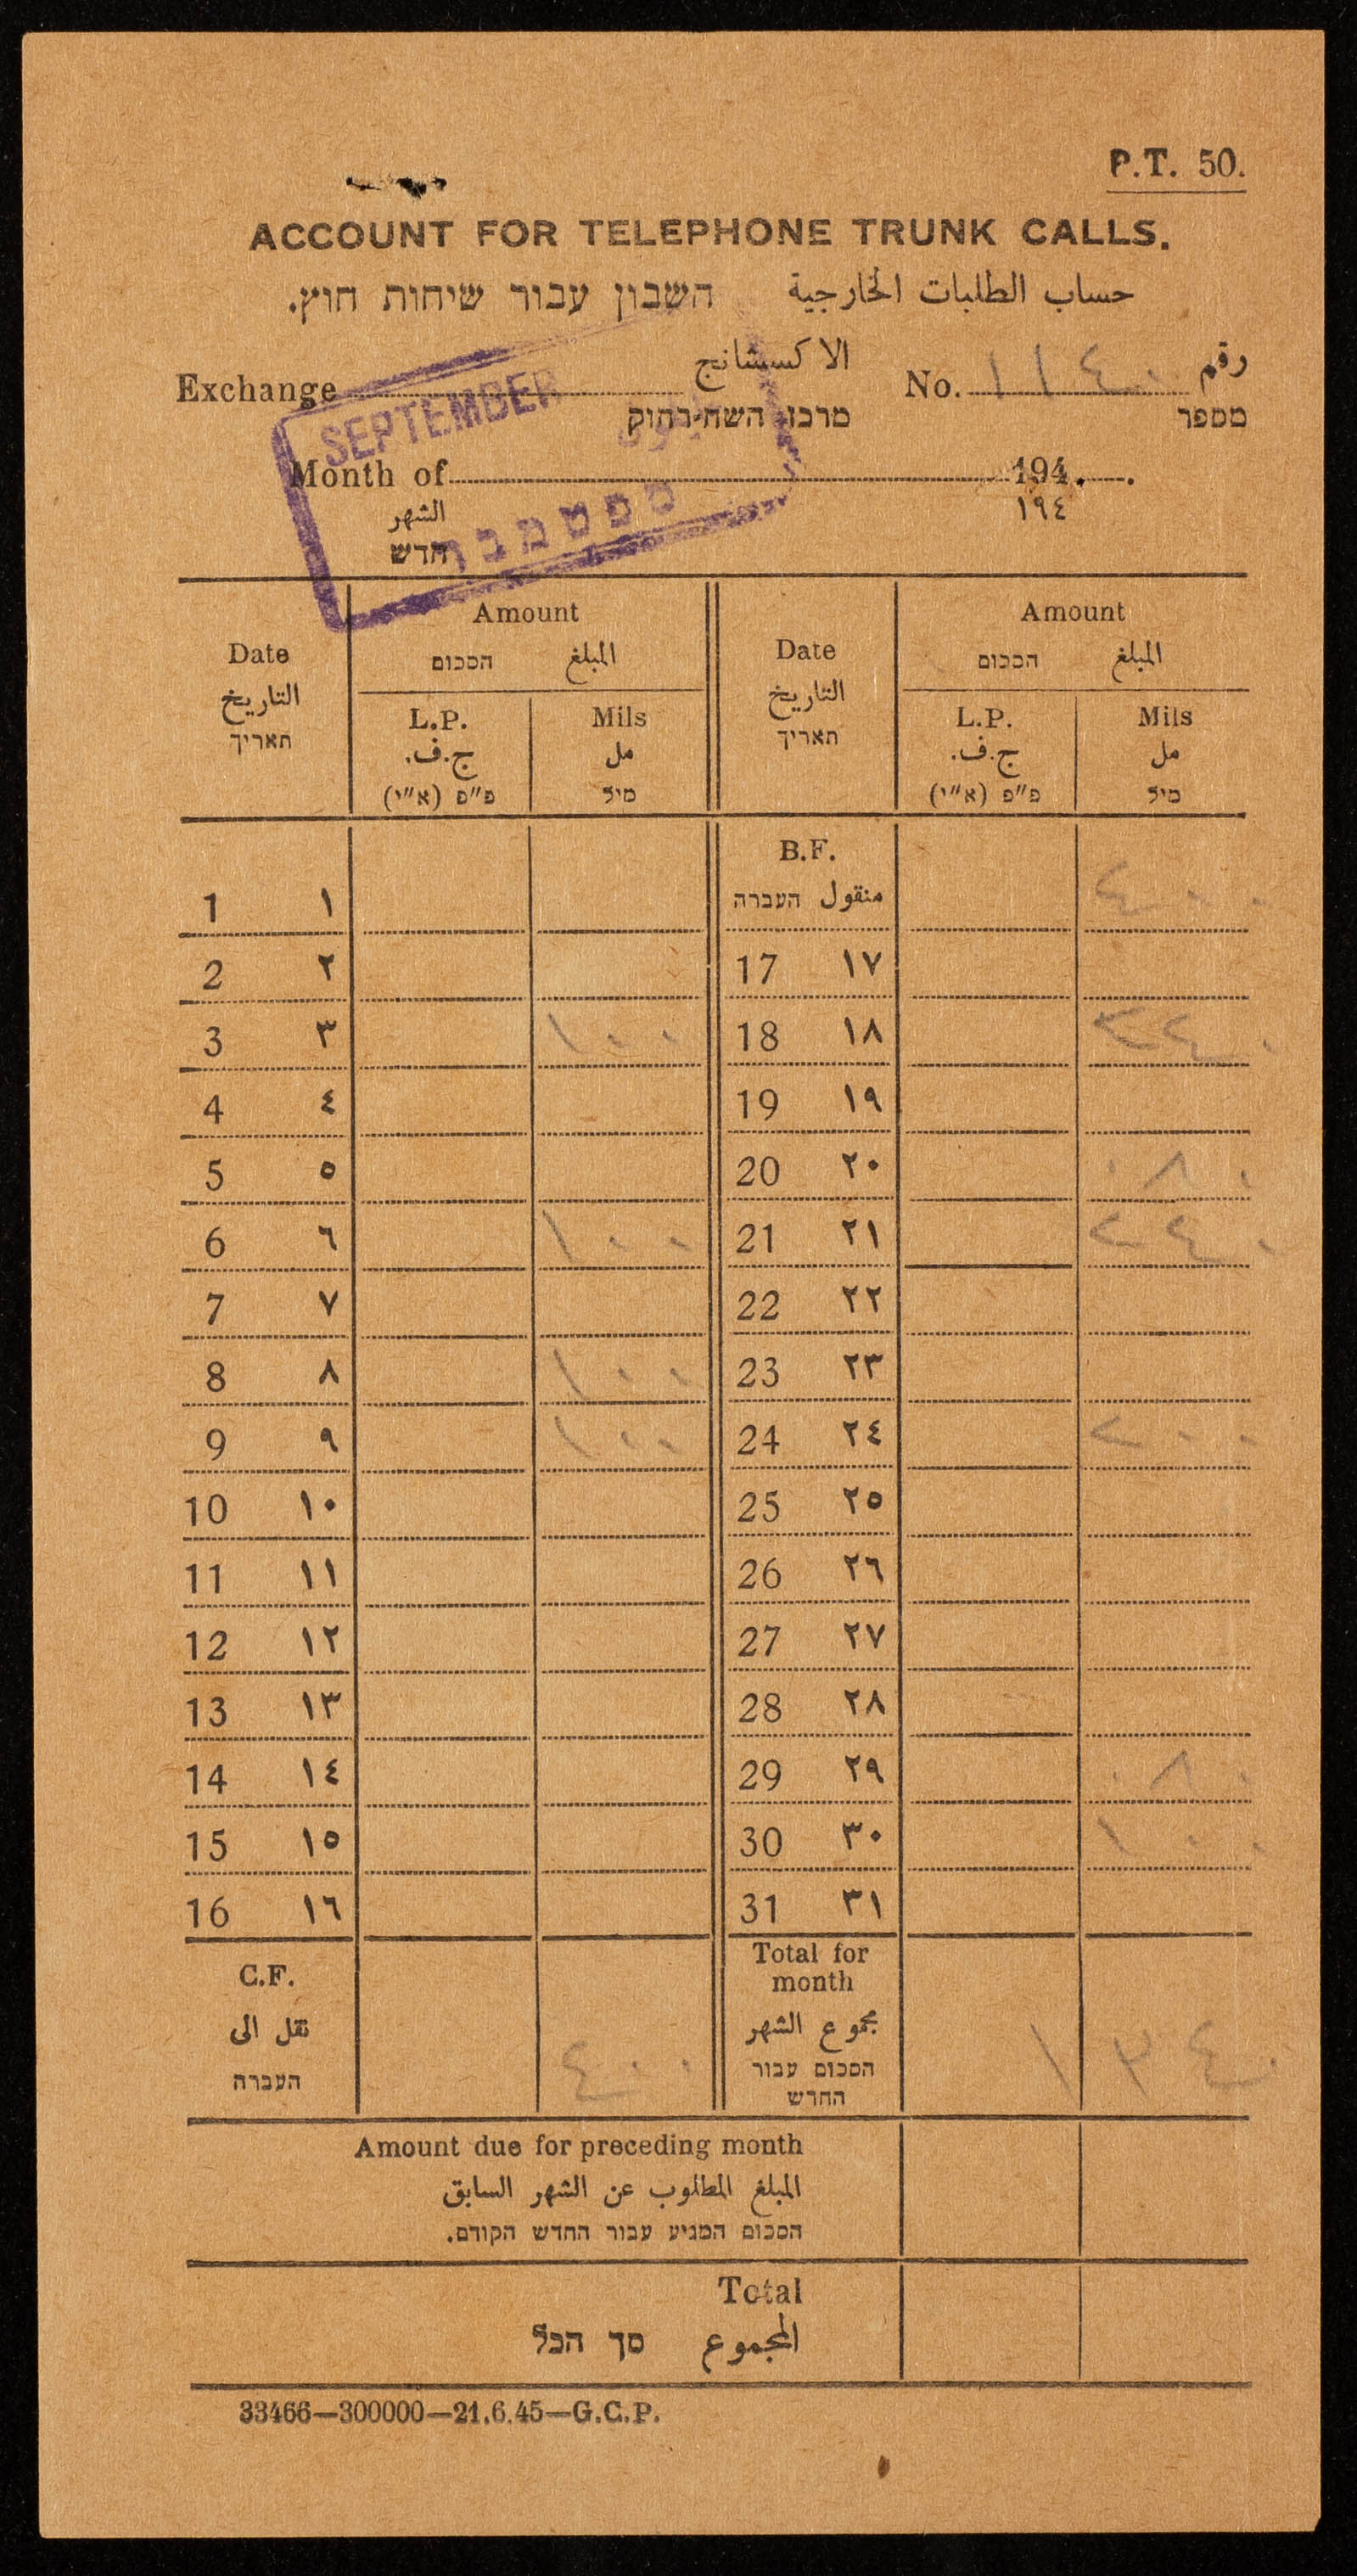 P.T. 50.
ACCOUNT FOR TELEPHONE TRUNK CALLS.
حساب الطلبات الخارجية חשבון עבור שיחות חוץ.
Exchange الاكسشانج No. ١١٤٠ رقم
מרכז השח-רחוק מספר
SEPTEMBER
Month of 194 .
الشهر ١٩٤
ספטמבר
חדש
Date Amount Date Amount
التاريخ הסכום المبلغ التاريخ הסכום المبلغ
תאריך L.P. Mils תאריך L.P. Mils
ج.ف. مل ج.ف. مل
פ"פ (א"י) מיל פ"פ (א"י) מיל
B.F.
1 ١ העברה منقول ٤٠٠
2 ٢ 17 ١٧
3 ٣ ١٠٠ 18 ١٨ ٢٤٠
4 ٤ 19 ١٩
5 ٥ 20 ٢٠ ٠٨٠
6 ٦ ١٠٠ 21 ٢١ ٢٤٠
7 ٧ 22 ٢٢
8 ٨ ١٠٠ 23 ٢٣
9 ٩ ١٠٠ 24 ٢٤ ٢٠٠
10 ١٠ 25 ٢٥
11 ١١ 26 ٢٦
12 ١٢ 27 ٢٧
13 ١٣ 28 ٢٨
14 ١٤ 29 ٢٩ ٠٨٠
15 ١٥ 30 ٣٠ ١٠٠
16 ١٦ 31 ٣١
C.F. Total for
month
نقل الى مجموع الشهر
העברה ٤٠٠ הסכום עבור ١ ٣٤٠
החדש
Amount due for preceding month
المبلغ المطلوب عن الشهر السابق
הסכום המגיע עבור החדש הקודם.
Total
المجموع סך הכל
33466—300000—21.6.45—G.C.P.